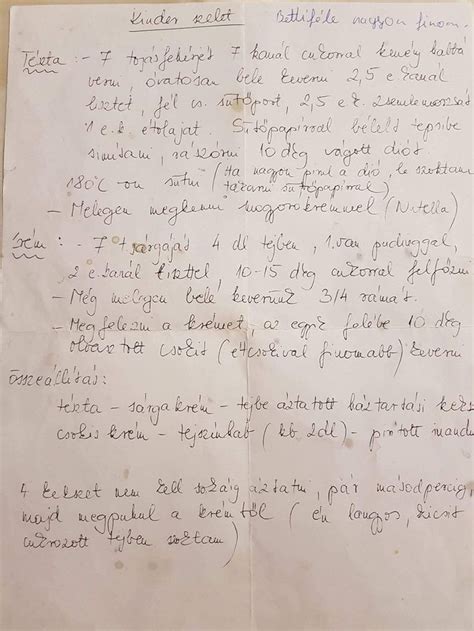 Kinder szelet Bettiféle nagyon finom
Tészta: - 7 tojásfehérjét 7 kanál cukorral kemény habbá
verni, óvatosan bele keverni 2,5 e.kanál
lisztet, fél cs. sütőport, 2,5 e.k. zsemlemorzsát
1 e.k. étolajat. Sütőpapírral bélelt tepsibe
simítani, rászórni 10 dkg vágott diót
180°C-on sütni (Ha nagyon pirul a dió, le szoktam
takarni sütőpapírral)
- Melegen megkenni mogyorókrémmel (Nutella)
Krém: - 7 t.sárgáját 4 dl tejben, 1 van. pudinggal,
2 e.kanál liszttel 10-15 dkg cukorral felfőzni
- Még melegen belé keverünk 3/4 rámát.
- Megfelezni a krémet, az egyik felébe 10 dkg
olvasztott csokit (étcsokival finomabb) keverni
Összeállítás:
tészta - sárga krém - tejbe áztatott háztartási keksz
csokis krém - tejszínhab (kb 2dl) - pirított mandu
A kekszet nem kell sokáig áztatni, pár másodpercig,
majd megpuhul a krémtől (én langyos, kicsit
cukrozott tejben szoktam)